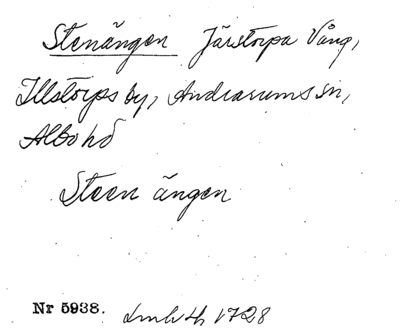 Stenängen Järstorpa Vång,
Illstorps by, Andrarums sn,
Albo hd
Steen ängen
Nr 5938. Lmh 4, 1728